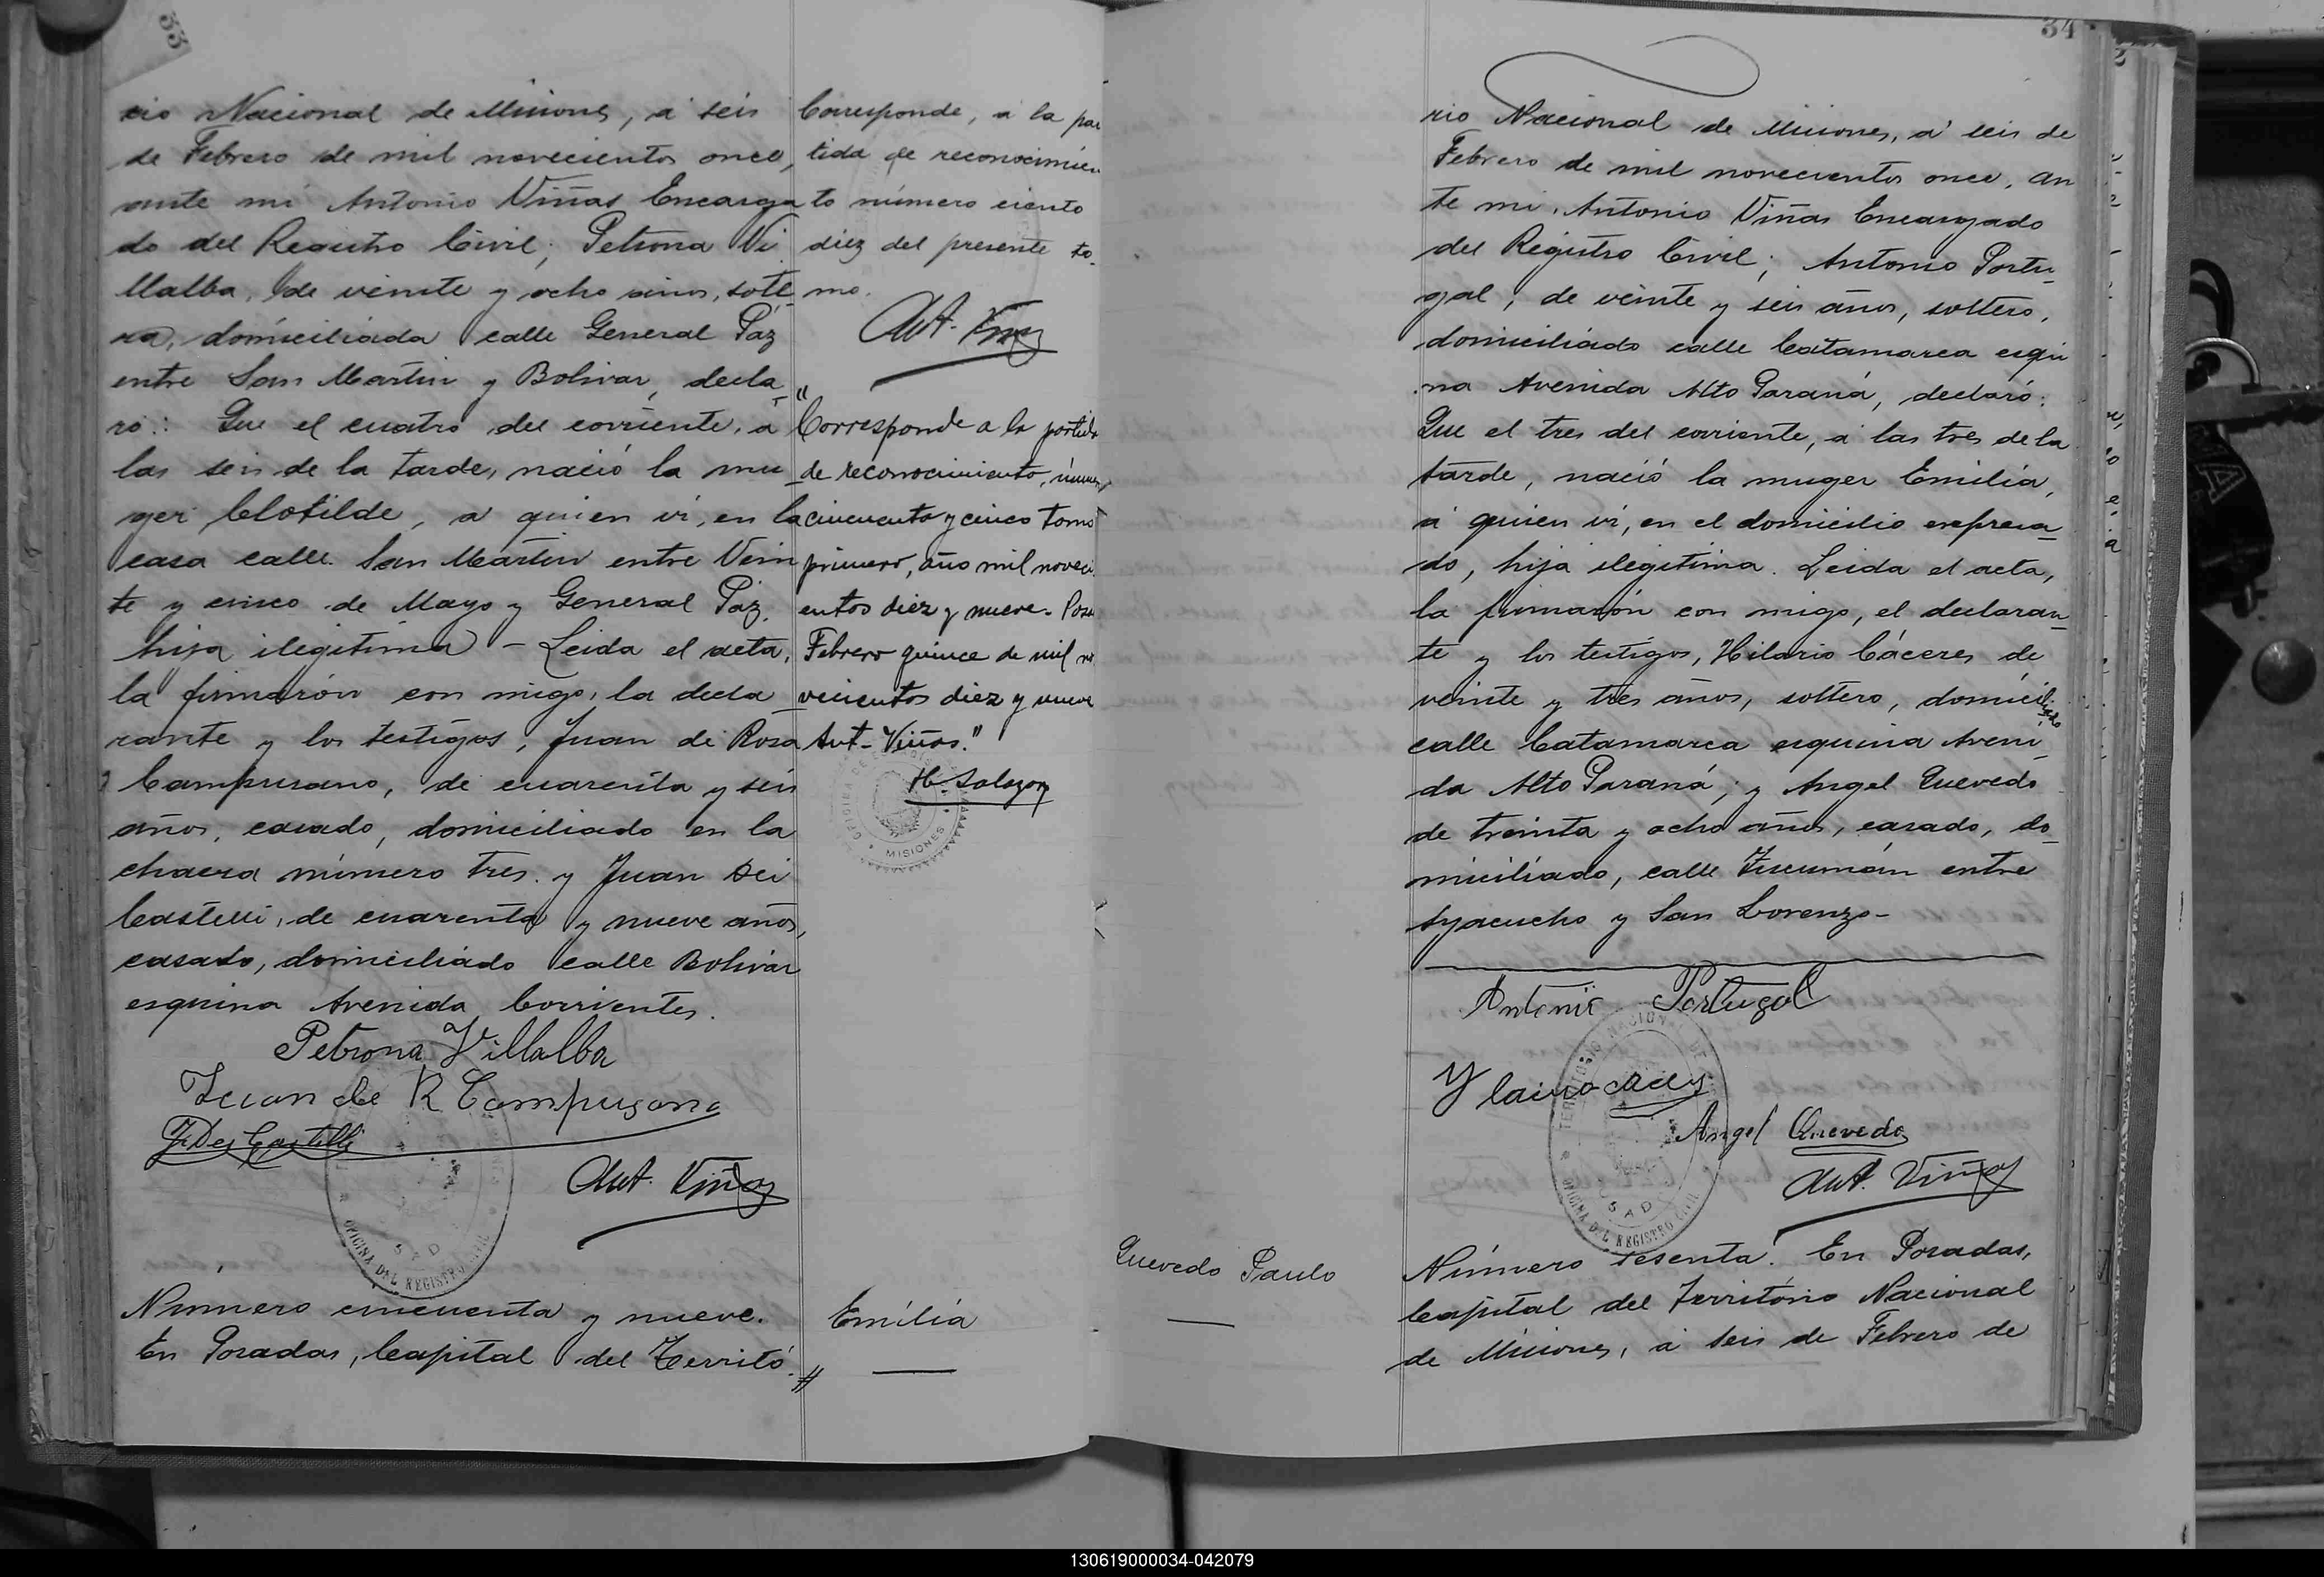 33
rio Nacional de Misiones, á seis
de Febrero de mil novecientos once,
ante mi Antonio Viñas Encarga
do del Registro Civil; Petrona Vi
llalba, de veinte y ocho años, solte
ra, domiciliada calle General Paz
entre San Martin y Bolivar, decla
ró: Que el cuatro del corriente, á
las seis de la tarde, nació la mu
ger Clotilde, á quien vi, en la
casa calle San Martin entre Vein
te y cinco de Mayo y General Paz,
hija ilegitima - Leida el acta,
la firmarón con migo, la decla
rante y los testigos, Juan de Rosa
Campusano, de cuarenta y seis
años, casado, domiciliado en la
chacra número tres. y Juan Dei
Castelli, de cuarenta y nueve años,
casado, domiciliado calle Bolivar
esquina Avenida Corrientes.
Petrona Villalba
Juan de R Campusano
J. Dei Castelli
Ant. Viñas
OFICINA DEL REGISTRO CIVIL
Número cincuenta y nueve.
En Posadas, Capital del Territó
Corresponde, a la par
tida de reconocimien
to número ciento
diez del presente to
mo.
Ant. Viñas
"Corresponde a la partida
de reconocimiento, número
cincuenta y cinco tomo
primero, año mil noveci
entos diez y nueve. Posa
Febrero quince de mil no
vecientos diez y nueve
Ant. Viñas."
H. Salazar
MISIONES
Emilia
34
rio Nacional de Misiones, á seis de
Febrero de mil novecientos once, an
te mi, Antonio Viñas Encargado
del Registro Civil; Antonio Portu
gal, de veinte y seis años, soltero,
domiciliado calle Catamarca esqui
na Avenida Alto Paraná, declaró:
Que el tres del corriente, á las tres de la
tarde, nació la muger Emilia,
á quien vi, en el domicilio espresa
do, hija ilegitima. Leida el acta,
la firmarón con migo, el declaran
te y los testigos, Hilario Cáceres de
veinte y tres años, soltero, domiciliado
calle Catamarca esquina Aveni
da Alto Paraná; y Angel Quevedo
de treinta y ocho años, casado, do
miciliado, calle Tucumán entre
Ayacucho y San Lorenzo-
Antonio Portugal
Angel Quevedo
Ant. Viñas
TERRITORIO NACIONAL DE
OFICINA DEL REGISTRO CIVIL
Quevedo Paulo
Número sesenta. En Posadas,
Capital del Territorio Nacional
de Misiones, á seis de Febrero de
130619000034-042079